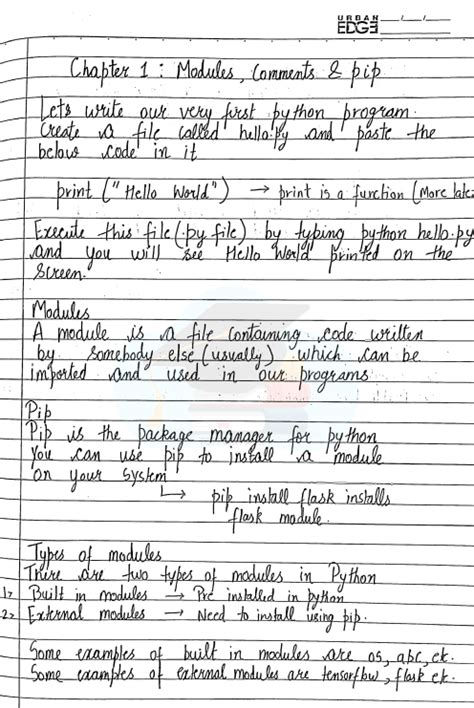 URBAN
EDGE
Chapter 1 : Modules, Comments & pip
Lets write our very first python program.
Create a file called hello.py and paste the
below code in it
print ("Hello World") → print is a function (More later
Execute this file (.py file) by typing python hello.py
and you will see Hello World printed on the
Screen.
Modules
A module is a file containing code written
by somebody else (usually) which can be
imported and used in our programs
Pip
Pip is the package manager for python
You can use pip to install a module
on your system
↳ pip install flask installs
flask module.
Types of modules
There are two types of modules in Python
1> Built in modules → Pre installed in python
2> External modules → Need to install using pip.
Some examples of built in modules are os, abc, etc.
Some examples of external modules are tensorflow, flask etc.